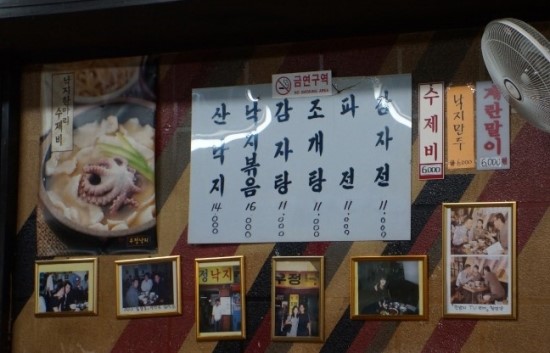 금연구역
NO SMOKING AREA
산낙지 14,000
낙지볶음 16,000
감자탕 11,000
조개탕 11,000
파전 11,000
감자전 11,000
수제비 6,000
낙지만두 6,000
계란말이 6,000
수제비
정낙지
우정낙